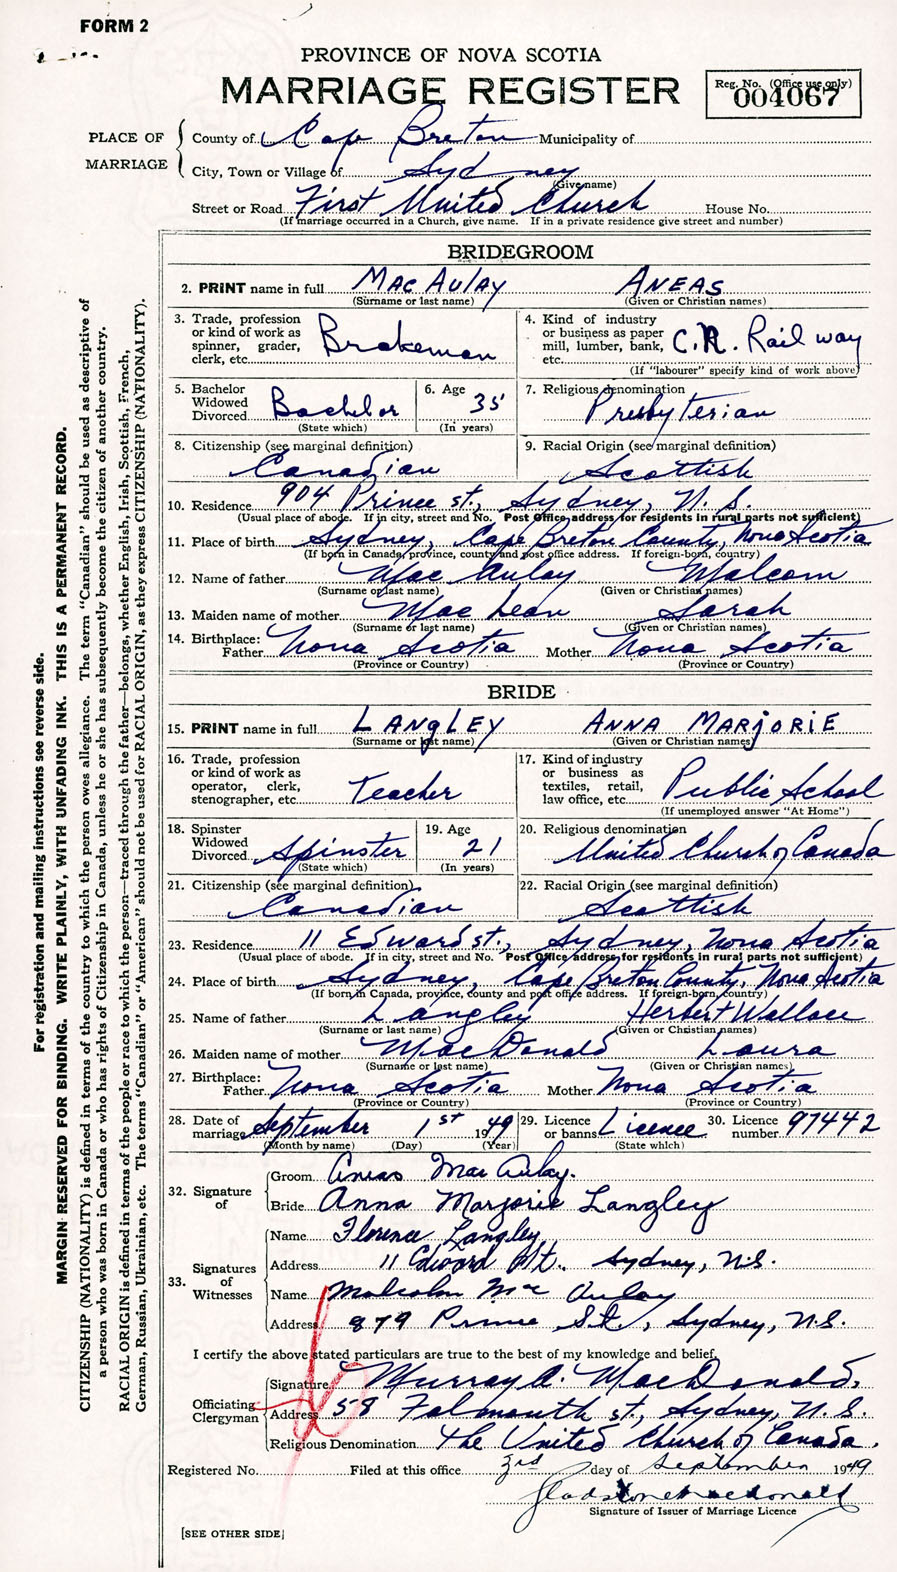 FORM 2
PROVINCE OF NOVA SCOTIA
MARRIAGE REGISTER
Reg. No. (Office use only)
004067
PLACE OF MARRIAGE
County of Cape Breton Municipality of
City, Town or Village of Sydney
(Give name)
Street or Road First United Church House No.
(If marriage occurred in a Church, give name. If in a private residence give street and number)
BRIDEGROOM
2. PRINT name in full MacAulay Aneas
(Surname or last name) (Given or Christian names)
3. Trade, profession or kind of work as spinner, grader, clerk, etc. Brakeman
4. Kind of industry or business as paper mill, lumber, bank, etc. C.N. Railway
(If "labourer" specify kind of work above)
5. Bachelor Widowed Divorced Bachelor
(State which)
6. Age 35
(In years)
7. Religious denomination Presbyterian
8. Citizenship (see marginal definition) Canadian
9. Racial Origin (see marginal definition) Scottish
10. Residence 904 Prince st., Sydney, N.S.
(Usual place of abode. If in city, street and No. Post Office address for residents in rural parts not sufficient)
11. Place of birth Sydney, Cape Breton County, Nova Scotia
(If born in Canada, province, county and post office address. If foreign-born, country)
12. Name of father MacAulay Malcom
(Surname or last name) (Given or Christian names)
13. Maiden name of mother MacLean Sarah
(Surname or last name) (Given or Christian names)
14. Birthplace: Father Nova Scotia Mother Nova Scotia
(Province or Country) (Province or Country)
BRIDE
15. PRINT name in full LANgLEY ANNA MARJORIE
(Surname or last name) (Given or Christian names)
16. Trade, profession or kind of work as operator, clerk, stenographer, etc. Teacher
17. Kind of industry or business as textiles, retail, law office, etc. Public School
(If unemployed answer "At Home")
18. Spinster Widowed Divorced Spinster
(State which)
19. Age 21
(In years)
20. Religious denomination United Church of Canada
21. Citizenship (see marginal definition) Canadian
22. Racial Origin (see marginal definition) Scottish
23. Residence 11 Edward st., Sydney, Nova Scotia
(Usual place of abode. If in city, street and No. Post Office address for residents in rural parts not sufficient)
24. Place of birth Sydney, Cape Breton County, Nova Scotia
(If born in Canada, province, county and post office address. If foreign-born, country)
25. Name of father Langley Herbert Wallace
(Surname or last name) (Given or Christian names)
26. Maiden name of mother MacDonald Laura
(Surname or last name) (Given or Christian names)
27. Birthplace: Father Nova Scotia Mother Nova Scotia
(Province or Country) (Province or Country)
28. Date of marriage September 1st 1949
(Month by name) (Day) (Year)
29. Licence or banns Licence
(State which)
30. Licence number 97442
32. Signature of
Groom Aneas MacAulay.
Bride Anna Marjorie Langley
33. Signatures of Witnesses
Name Florence Langley
Address 11 Edward St., Sydney, N.S.
Name Malcolm MacAulay
Address 879 Prince St., Sydney, N.S.
I certify the above stated particulars are true to the best of my knowledge and belief.
Officiating Clergyman
Signature Murray A. MacDonald.
Address 58 Falmouth st., Sydney, N.S.
Religious Denomination The United Church of Canada.
Registered No. Filed at this office 3rd day of September 1949
Gladstone Macdonald
Signature of Issuer of Marriage Licence
[SEE OTHER SIDE]
For registration and mailing instructions see reverse side.
MARGIN RESERVED FOR BINDING. WRITE PLAINLY, WITH UNFADING INK. THIS IS A PERMANENT RECORD.
CITIZENSHIP (NATIONALITY) is defined in terms of the country to which the person owes allegiance. The term "Canadian" should be used as descriptive of
a person who was born in Canada or who has rights of Citizenship in Canada, unless he or she has subsequently become the citizen of another country.
RACIAL ORIGIN is defined in terms of the people or race to which the person—traced through the father—belongs, whether English, Irish, Scottish, French,
German, Russian, Ukrainian, etc. The terms "Canadian" or "American" should not be used for RACIAL ORIGIN, as they express CITIZENSHIP (NATIONALITY).